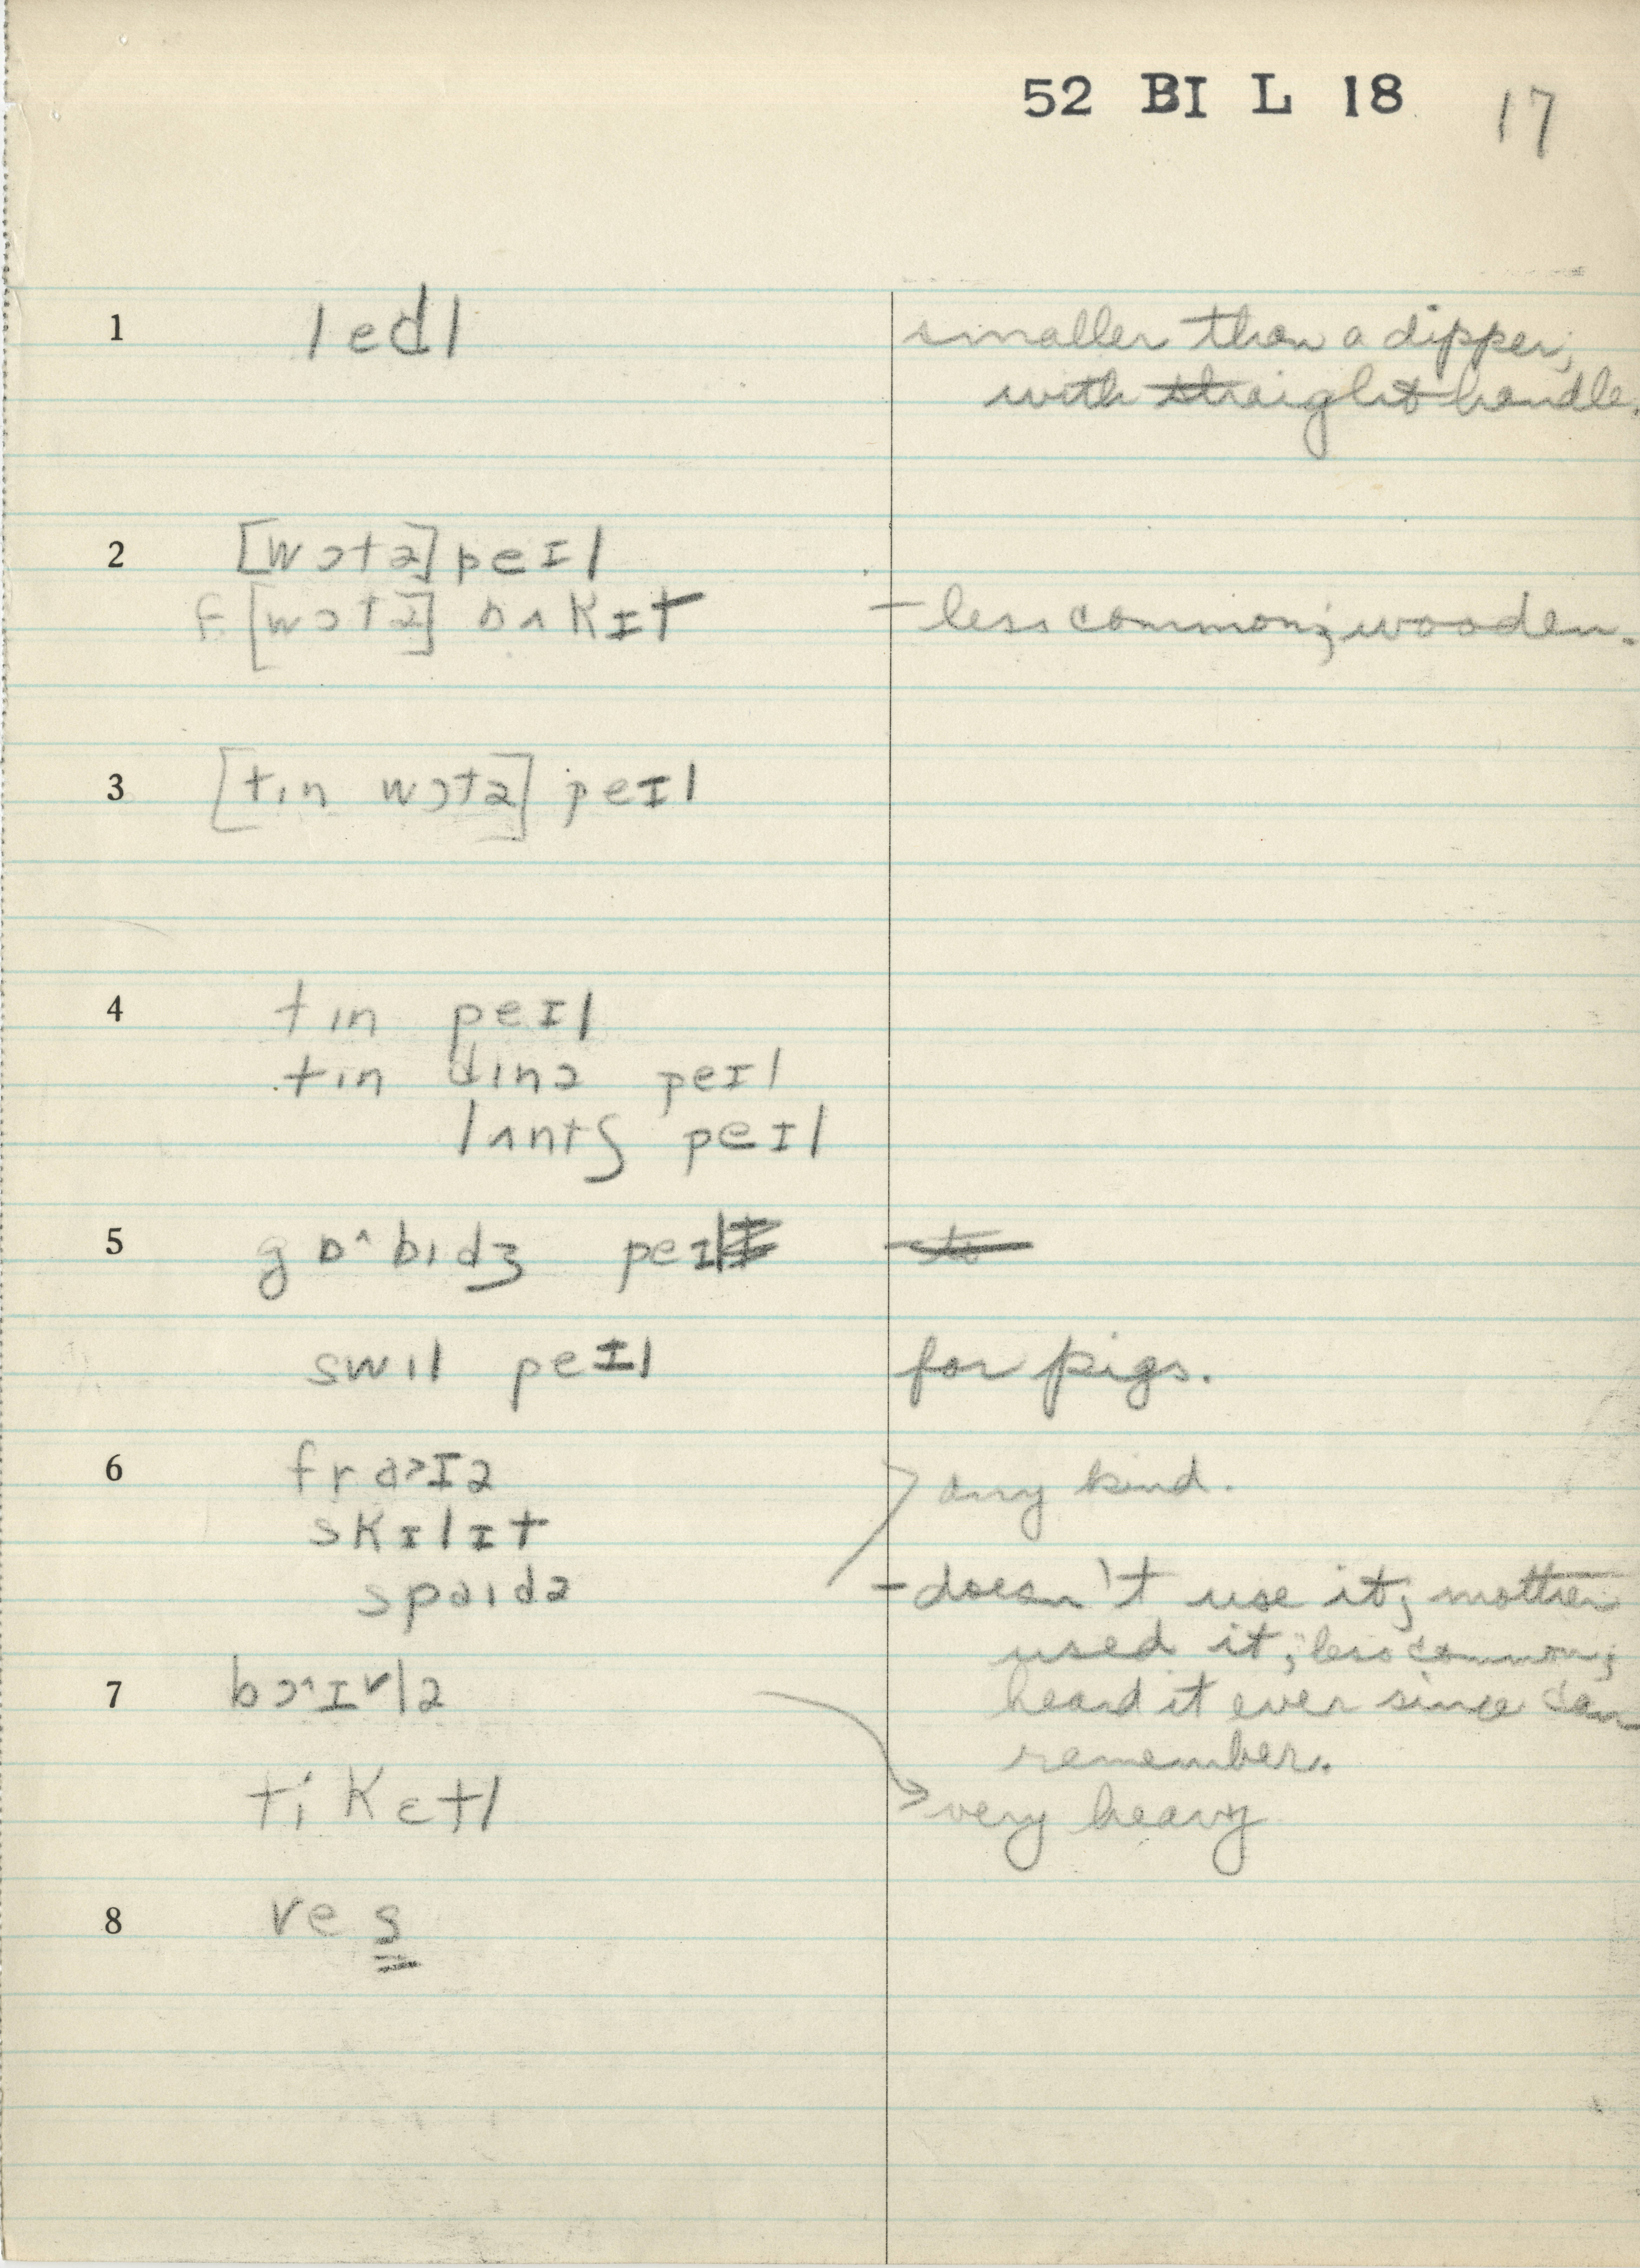 52 BI L 18 17
1 ledl smaller than a dipper,
with straight handle.
2 [wɔtə] peɪl
f. [wɔtə] bʌkɪt – less common; wooden.
3 [tɪn wɔtə] peɪl
4 tɪn peɪl
tɪn dɪnə peɪl
lʌntʃ peɪl
5 gɒ^bɪdʒ peɪl
swɪl peɪl for pigs.
6 fra>ɪə any kind.
skɪlɪt
spaɪdə – doesn't use it; mother
used it; "less common;
heard it ever since can
7 bɔ^ɪvlə
remember.
ti'kɛtl very heavy
8 ves